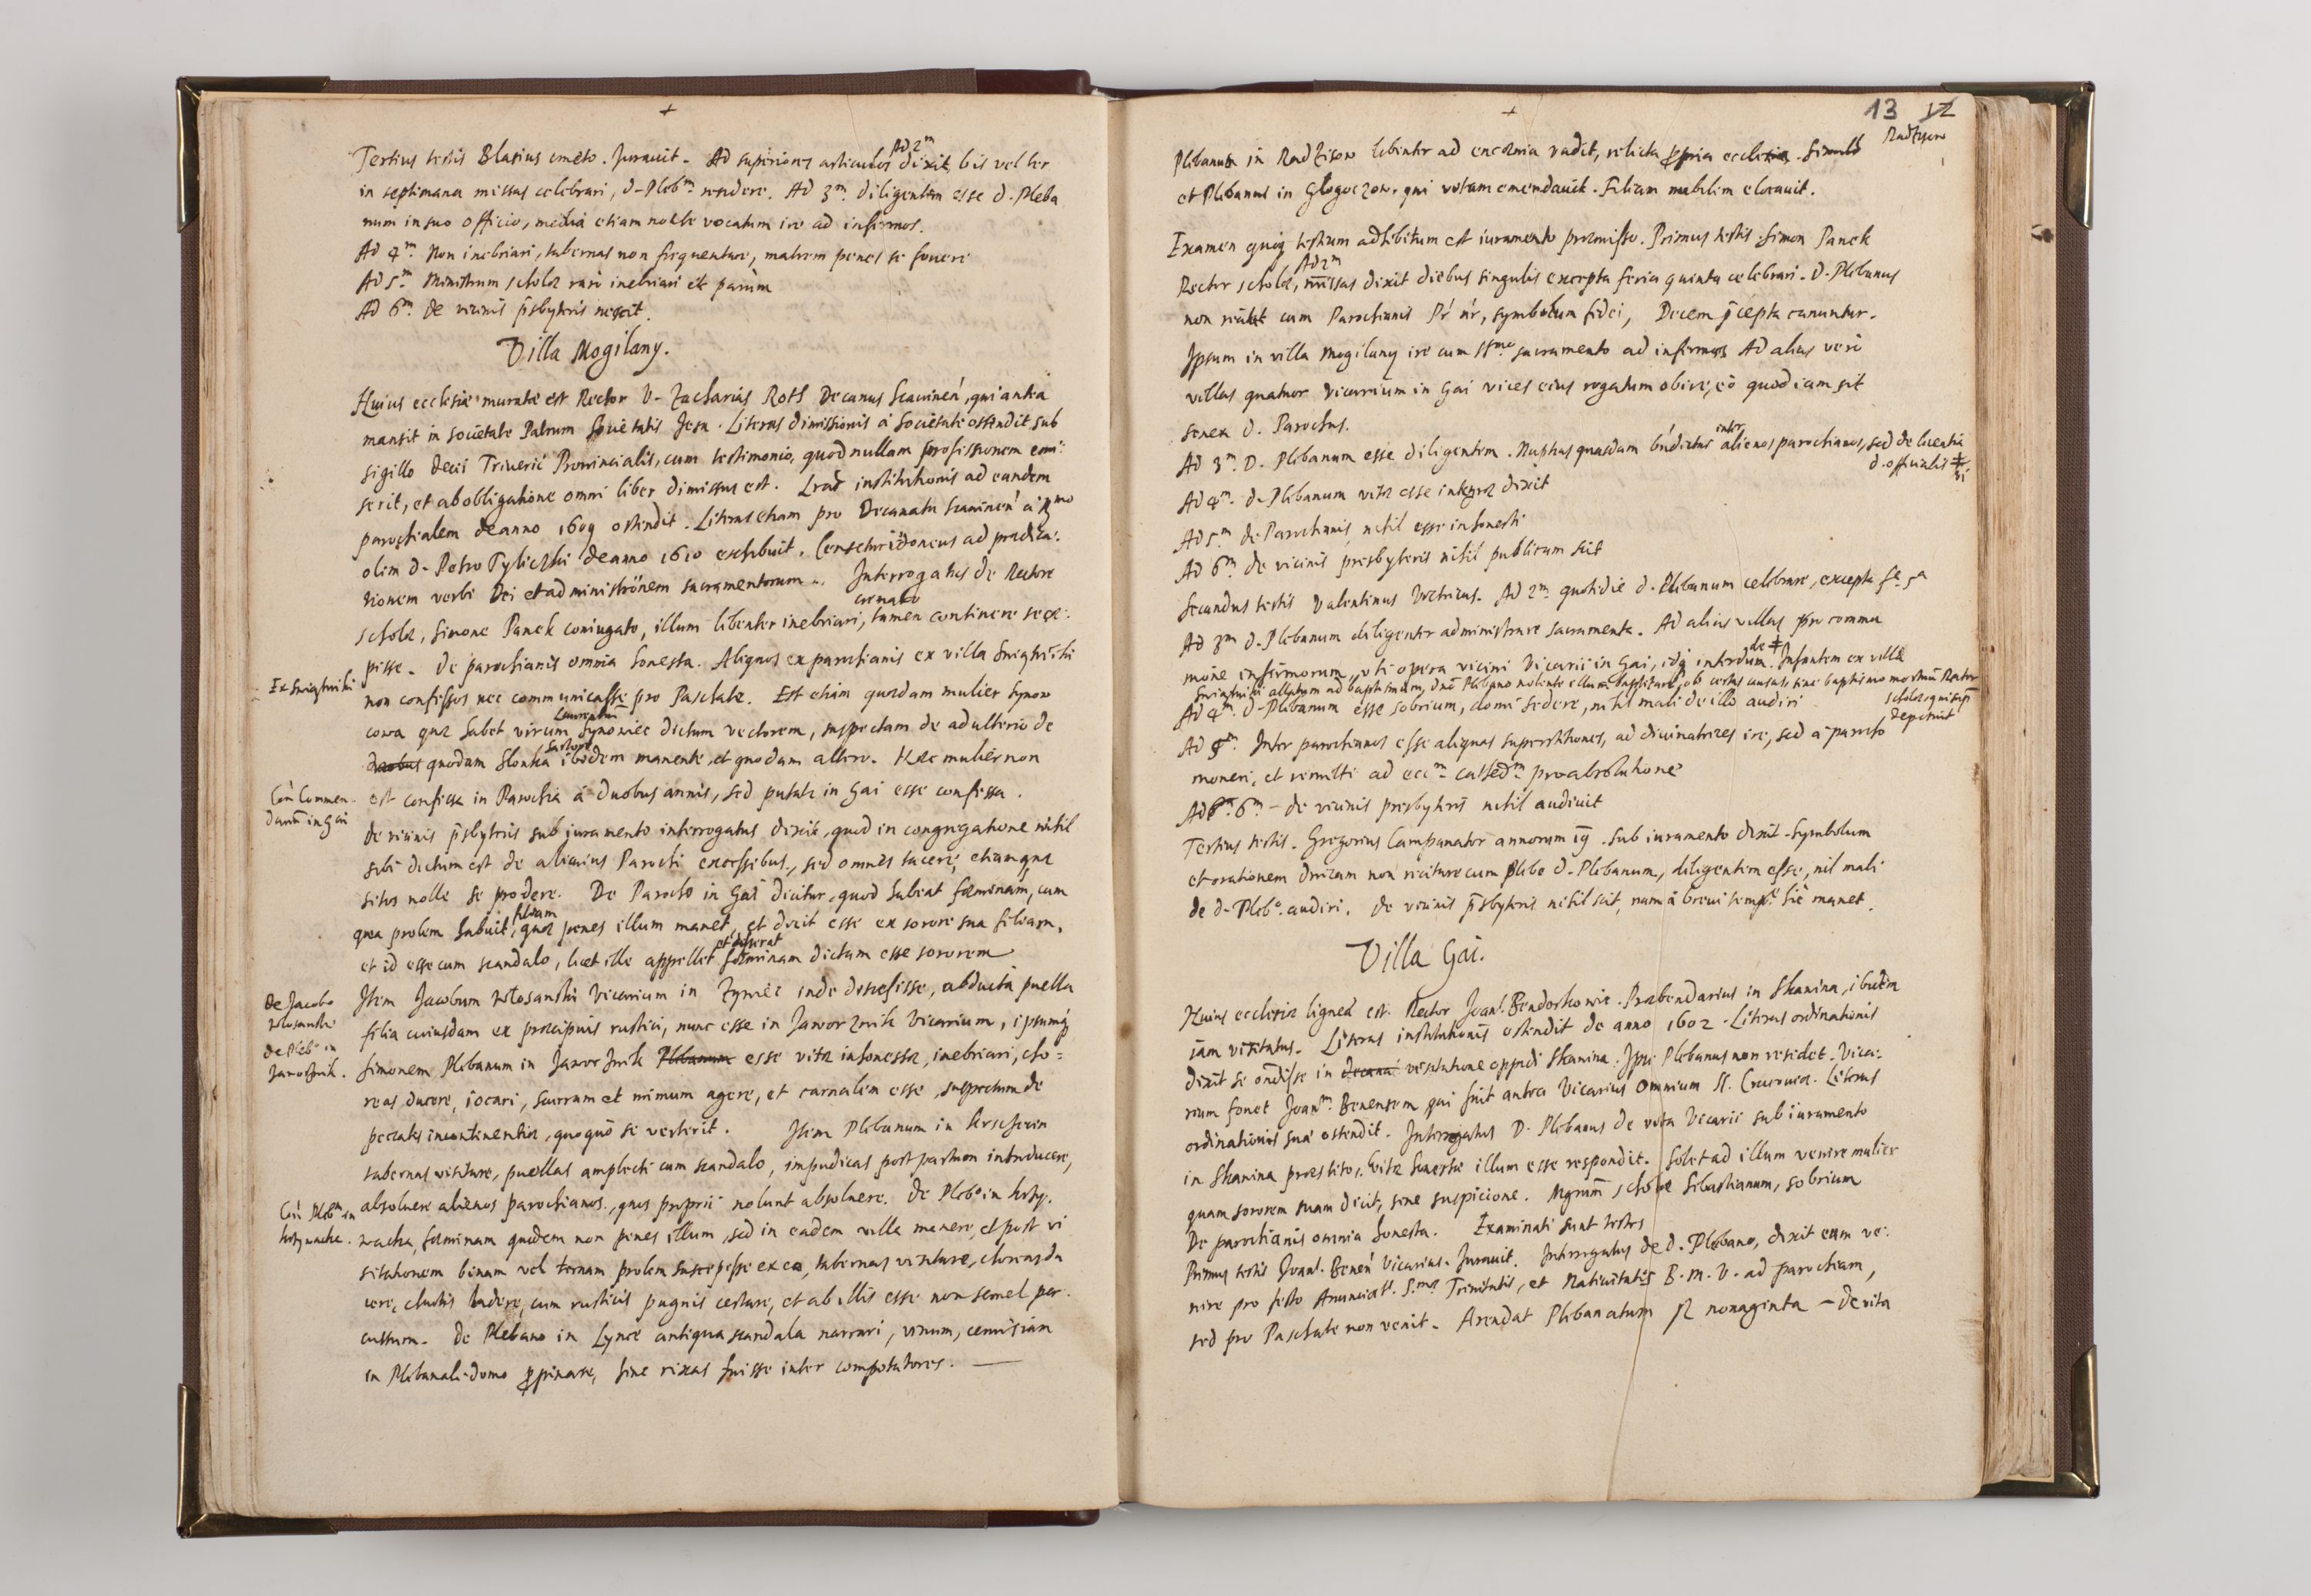 +
Tertius testis Blasius cmeto. Jurauit. Ad superiores articulos Ad 2m dixit, bis vel ter
in septimana missas celebrari, d. Plebm residere. Ad 3m. diligentem esse d. Pleba
num in suo officio, media etiam nocte vocatum ire ad infirmos.
Ad 4m. Non inebriari, tabernas non frequentare, matrem penes se fouere
Ad 5m Ministrum scholæ raro inebriari et parum
Ad 6m. de vicinis psbyteris nescit.
Villa Mogilany.
Huius ecclesiæ muratæ est Rector V. Zacharias Rots Decanus Scauinen, qui antea
mansit in societate Patrum Societatis Jesu. Literas dimissionis à Societate ostendit sub
sigillo Decii Triuerii Prouincialis, cum testimonio, quod nullam professionem emi-
serit, et ab obligatione omni liber dimissus est. Lras institutionis ad eandem
parochialem de anno 1609 ostendit. Literas etiam pro Decanatu Scauinen à Rmo
olim d. Petro Tyliczki de anno 1610 exhibuit. Censetur idoneus ad prædica-
tionem verbi Dei et administronem sacramentorum. Interrogatus de Rectore
scholæ, Simone Panek coniugato, illum libenter inebriari, cremato tamen continere se cæ-
pisse. De parochianis omnia honesta. Aliquos ex parochianis ex villa Swiątniki
Ex Swiątniki
non confessos nec communicasse pro Paschate. Est etiam quædam mulier Synow
cowa quæ habet virum Laurentium Synowiec dictum vectorem, suspectam de adulterio de
duobus quodam Slonka sartore ibidem manente, et quodam altero. Hæc mulier non
est confessa in Parochia à duobus annis, sed putatur in Gai esse confessa.
Con Commen-
darium in Gai
De vicinis psbyteris sub juramento interrogatus dixit, quod in congregatione nihil
sibi dictum est de alicuius Parochi excessibus, sed omnes tacere, etiam quæ
situs nolle se prodere. De Parocho in Gai dicitur, quod habeat fæminam, cum
qua prolem habuit, filiam quæ penes illum manet, et dicit esse ex sorore sua filiam,
et id esse cum scandalo, licet ille appellet et dixerat fæminam dictam esse sororem
Item Jacobum Wlosanski Vicarium in Tyniec inde discessisse, abducta puella
De Jacobo
Wlosanski
filia cuiusdam ex præcipuis rustici, nunc esse in Jaworznik Vicarium, ipsumq
De Plebo in
Jaworznik.
Simonem Plebanum in Jaworznik Plebanum esse vitæ inhonestæ, inebriari, cho-
reas ducere, iocari, scurram et mimum agere, et carnalem esse, suspectum de
peccatis incontinentiæ, quoquo se verterit. Item Plebanum in Krzęczin
tabernas visitare, puellas amplecti cum scandalo, impudicas post partum introducere,
absoluere alienos parochianos, quos proprii nolunt absoluere. De Plebo in Krzy-
Con Plebm in
Krzywacka.
wacka, fæminam quidem non penes illum, sed in eadem villa manere, et post vi
sitationem binam vel ternam prolem suscepisse ex ea, tabernas visitare, choreas du
cere, chartis ludere, cum rusticis pugnis certare, et ab illis esse non semel per-
cussum. De Plebano in Lyncz antiqua scandala narrari, vinum, ceruisiam
in Plebanali domo ppinare, sine rixas fuisse inter compotatores.
+
13 12
Plebanus in Radziszow libenter ad encænia vadit, relicta ppria ecclesia. Simili
Radziszow
et Plebanus in Głogoczow, qui votum emendauit. Filiam maritam elocauit.
Examen quoq testium adhibitum est iuramento præmisso. Primus testis Simon Panek
Rector scholæ, Ad 2m missas dixit diebus singulis excepta feria quinta celebrari. D. Plebanus
non recitat cum Parochianis Pr nr, symbolum fidei, Decem pcepta canuntur.
Ipsum in villa Mogilany ire cum SSmo sacramento ad infirmos Ad alias vero
villas quatuor Vicarium in Gai vices eius rogatum obire, eò quod iam sit
senex D. Parochus.
Ad 3m. D. Plebanum esse diligentem. Nuptias quasdam bndictas inter alienos parochianos, sed de licentia
d. officialis
Ad 4m. d. Plebanum vitæ esse integræ dixit
Ad 5m de Parochianis, nihil esse inhonesti
Ad 6m de vicinis presbyteris nihil publicum scit
Secundus testis Valentinus Vietricus. Ad 2m quotidie d. Plebanum celebrare, excepta fe 5a
Ad 3m d. Plebanum diligenter administrare sacramenta. Ad alias villas pro commu
nione infirmorum, uti opera vicini Vicarii in Gai, idq interdum. Infantem ex villa
Swiątniki allatum ad baptismum, dno Plebano nolente illum baptizare, ob certas causas sine baptismo mortuum Rector
scholæ qui scip
deposuit
Ad 4m. d. Plebanum esse sobrium, domi sedere, nihil mali de illo audiri
Ad 5m. Inter parochianos esse aliquas superstitiones, ad diuinatrices ire, sed à parocho
moneri, et remitti ad eccm cathedm pro absolutione
Ad 6m - de vicinis presbyteris nihil audiuit
Tertius testis. Gregorius Campanator annorum 19. sub iuramento dixit. Symbolum
et orationem dnicam non recitare cum plebe d. Plebanum, diligentem esse, nil mali
de d. Plebo. audiri. De vicinis psbyteris nihil scit, nam à breui tempe hic manet.
Villa Gai.
Huius ecclesiæ ligneæ est Rector Joan. Bendorkowic. Præbendarius in Skauina, ibidem
iam visitatus. Literas institutionis ostendit de anno 1602. Literas ordinationis
dixit se ondisse in decana visitatione oppidi Skauina. Ipse Plebanus non residet. Vica-
rium fouet Joanm. Benensem qui fuit antea Vicarius Omnium SS. Cracouiæ. Literas
ordinationis suæ ostendit. Interrogatus D. Plebanus de vita Vicarii sub iuramento
in Skauina præstito, vitæ honestæ illum esse respondit. Solet ad illum venire mulier
quam sororem suam dicit, sine suspicione. Mgrum scholæ Sebastianum, sobrium
De parochianis omnia honesta. Examinati sunt testes
Primus testis Joan. Benen Vicarius. Jurauit. Interrogatus de d. Plebano, dixit eum ve-
nire pro festo Anunciat. S.mæ Trinitatis, et Natiuitatis B. M. V. ad parochiam,
sed pro Paschate non venit. Arendat Plebanatum fl nonaginta - De vita